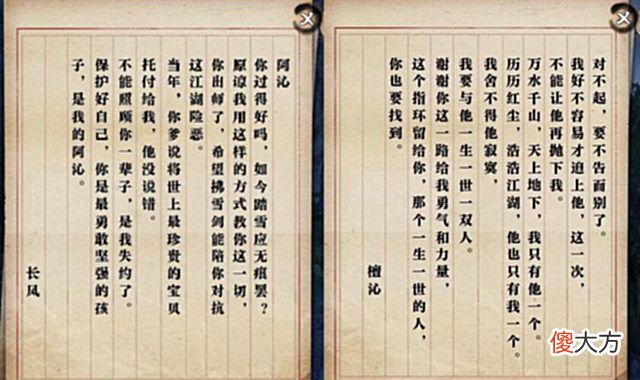 阿沁
你过得好吗，如今踏雪应无痕罢？
原谅我用这样的方式教你这一切，
你出师了，希望拂雪剑能陪你对抗
这江湖险恶。
当年，你爹说将世上最珍贵的宝贝
托付给我，他没说错。
不能照顾你一辈子，是我失约了。
保护好自己，你是最勇敢坚强的孩
子，是我的阿沁。
长风
对不起，要不告而别了。
我好不容易才追上他，这一次，
不能让他再抛下我。
万水千山，天上地下，我只有他一个。
历历红尘，浩浩江湖，他也只有我一个。
我舍不得他寂寞，
我要与他一生一世一双人。
谢谢你这一路给我勇气和力量，
这个指环留给你，那个一生一世的人，
你也要找到。
檀沁
傻大方